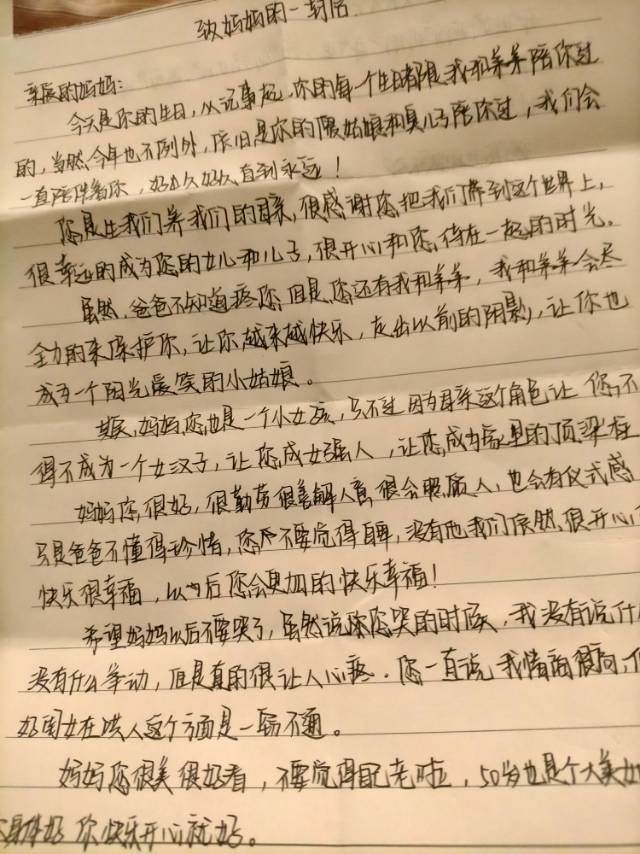 致妈妈的一封信
亲爱的妈妈:
今天是你的生日,从记事起,你的每一个生日都是我和弟弟陪你过
的,当然今年也不例外,依旧是你的暖姑娘和臭儿子陪你过,我们会
一直陪伴着你,好久好久直到永远!
您是生我们养我们的母亲,很感谢您把我们带到这个世界上,
很幸运的成为您的女儿和儿子,很开心和您待在一起的时光。
虽然,爸爸不知道疼您,但是,您还有我和弟弟,我和弟弟会尽
全力的来保护你,让你越来越快乐,走出以前的阴影,让你也
成为一个阳光爱笑的小姑娘。
其实,妈妈,您也是一个小女孩,只不过因为母亲这个角色让您不
得不成为一个女汉子,让您成女强人,让您成为家里的顶梁柱
妈妈您很好,很勤劳很善解人意,很会照顾人,也会有仪式感
只是爸爸不懂得珍惜,您不要觉得自卑,没有他我们依然很开心
快乐很幸福,以为后您会更加的快乐幸福!
希望妈妈以后不要哭了,虽然说您哭的时候,我没有说什
没有什么举动,但是真的很让人心疼.您一直说我情商很高,但
好闺女在哄人这个方面是一窍不通。
妈妈您很美很好看,不要觉得自己老啦,50岁也是个大美女
身体好 你快乐开心就好。